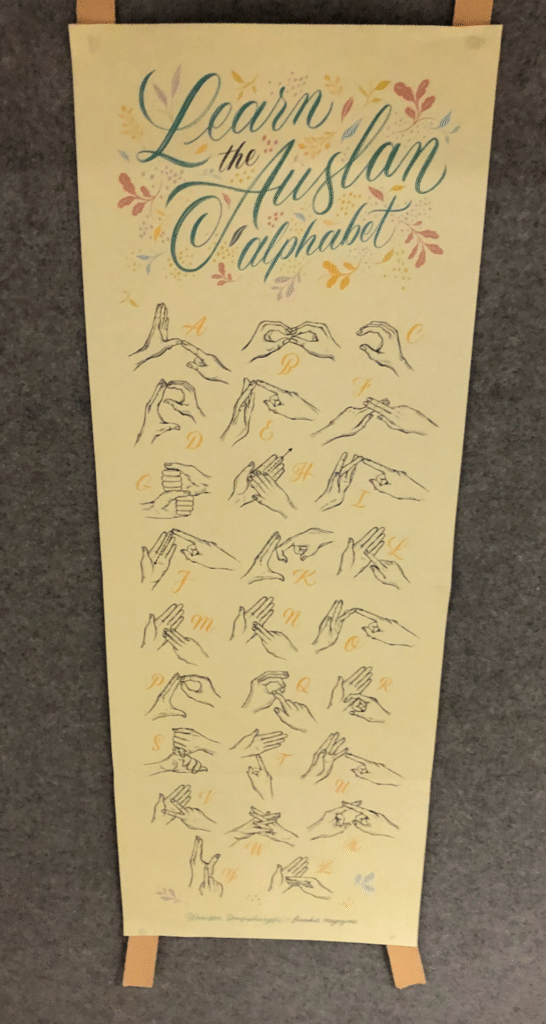 Learn
the
Auslan
alphabet
A
B
C
D
E
F
G
H
I
J
K
L
M
N
O
P
Q
R
S
T
U
V
W
X
Y
Z